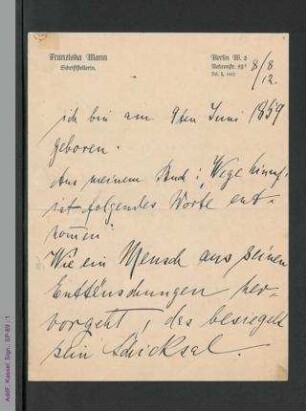 Franziska Mann
Schriftstellerin.
Berlin W. 8
8/8
12.
ich bin am 9ten Juni 1859
geboren.
Aus meinem Buch: "Wege hinauf"
ist folgendes Worte ent-
nommen:
Wie ein Mensch aus seinen
Enttäuschungen her-
vorgeht, das besiegelt
sein Schicksal.
AddF, Kassel, Sign.: SP-89 ; 1